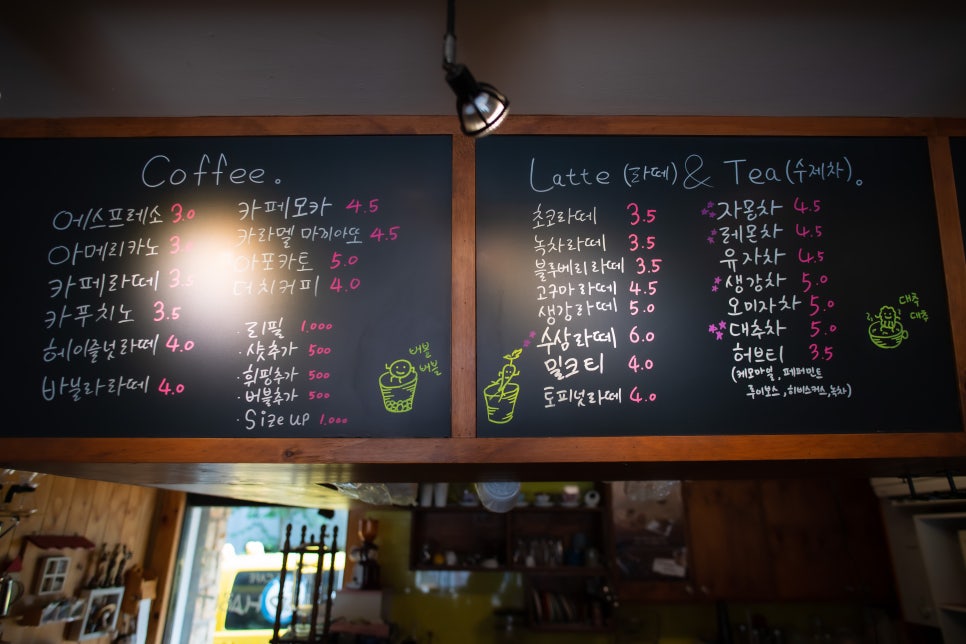 Coffee.
에스프레소 3.0
아메리카노 3.
카페라떼 3.5
카푸치노 3.5
헤이즐넛라떼 4.0
바닐라라떼 4.0
카페모카 4.5
카라멜 마끼아또 4.5
아포카토 5.0
더치커피 4.0
·리필 1,000
·샷추가 500
·휘핑추가 500
·버블추가 500
·Size up 1,000
버블
버블
Latte (라떼) & Tea (수제차).
초코라떼 3.5
녹차라떼 3.5
블루베리라떼 3.5
고구마라떼 4.5
생강라떼 5.0
수삼라떼 6.0
밀크티 4.0
토피넛라떼 4.0
자몽차 4.5
레몬차 4.5
유자차 4.5
생강차 5.0
오미자차 5.0
대추차 5.0
허브티 3.5
(케모마일, 페퍼민트
루이보스, 히비스커스, 녹차)
대추
대추
CAFE